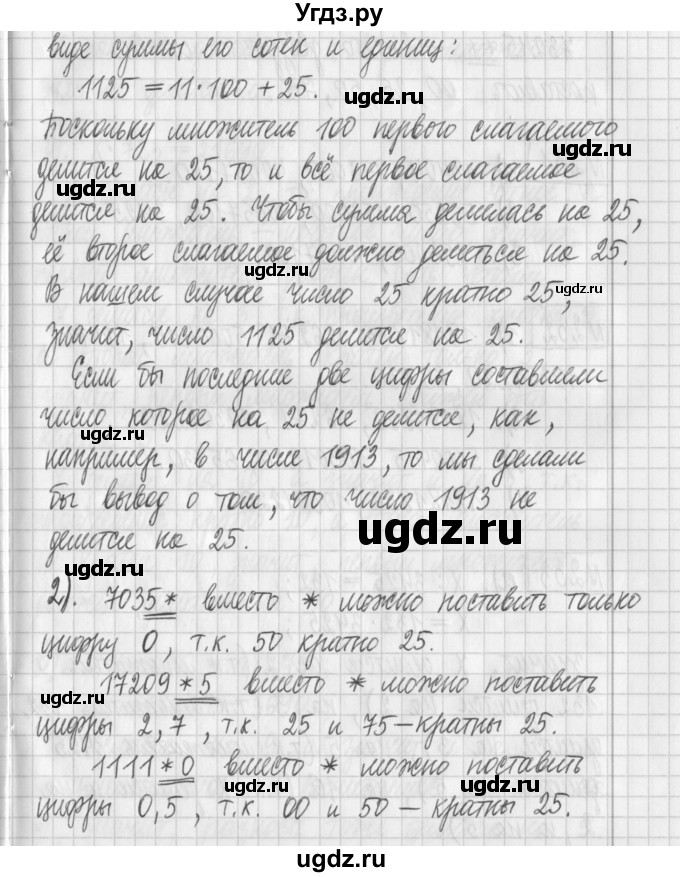 Угдз.ру
виде суммы его сотен и единиц:
1125 = 11·100 + 25.
ugdz.ru
Поскольку множитель 100 первого слагаемого
ugdz.ru
делится на 25, то и всё первое слагаемое
ugdz.ru
делится на 25. Чтобы сумма делилась на 25,
её второе слагаемое должно делиться на 25.
ugdz.ru
В нашем случае число 25 кратно 25,
ugdz.ru
значит, число 1125 делится на 25.
Если бы последние две цифры составляли
ugdz.ru
число которое на 25 не делится, как,
ugdz.ru
например, в числе 1913, то мы сделали
бы вывод о том, что число 1913 не
ugdz.ru
делится на 25.
ugdz.ru
2). 7035* вместо * можно поставить только
цифру 0, т.к. 50 кратно 25.
ugdz.ru
17209*5 вместо * можно поставить
ugdz.ru
цифры 2, 7, т.к. 25 и 75 – кратны 25.
ugdz.ru
1111*0 вместо * можно поставить
ugdz.ru
цифры 0, 5, т.к. 00 и 50 – кратны 25.
ugdz.ru
ugdz.ru